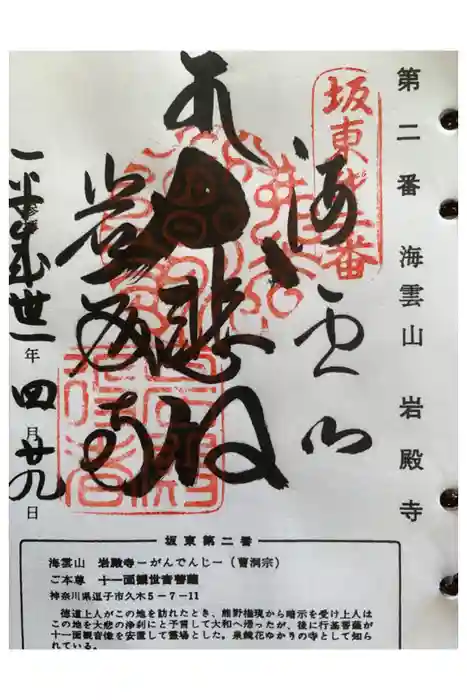 第二番 海雲山 岩殿寺
坂東第二番
海雲山
大悲殿
岩殿寺
平成廿一年四月廿九日
坂東第二番
海雲山 岩殿寺ーがんでんじー（曹洞宗）
ご本尊 十一面観世音菩薩
神奈川県逗子市久木5-7-11
徳道上人がこの地を訪れたとき、熊野権現から暗示を受け上人は
この地を大悲の浄刹にと予言して大和へ帰ったが、後に行基菩薩が
十一面観音像を安置して霊場とした。泉鏡花ゆかりの寺として知ら
れている。